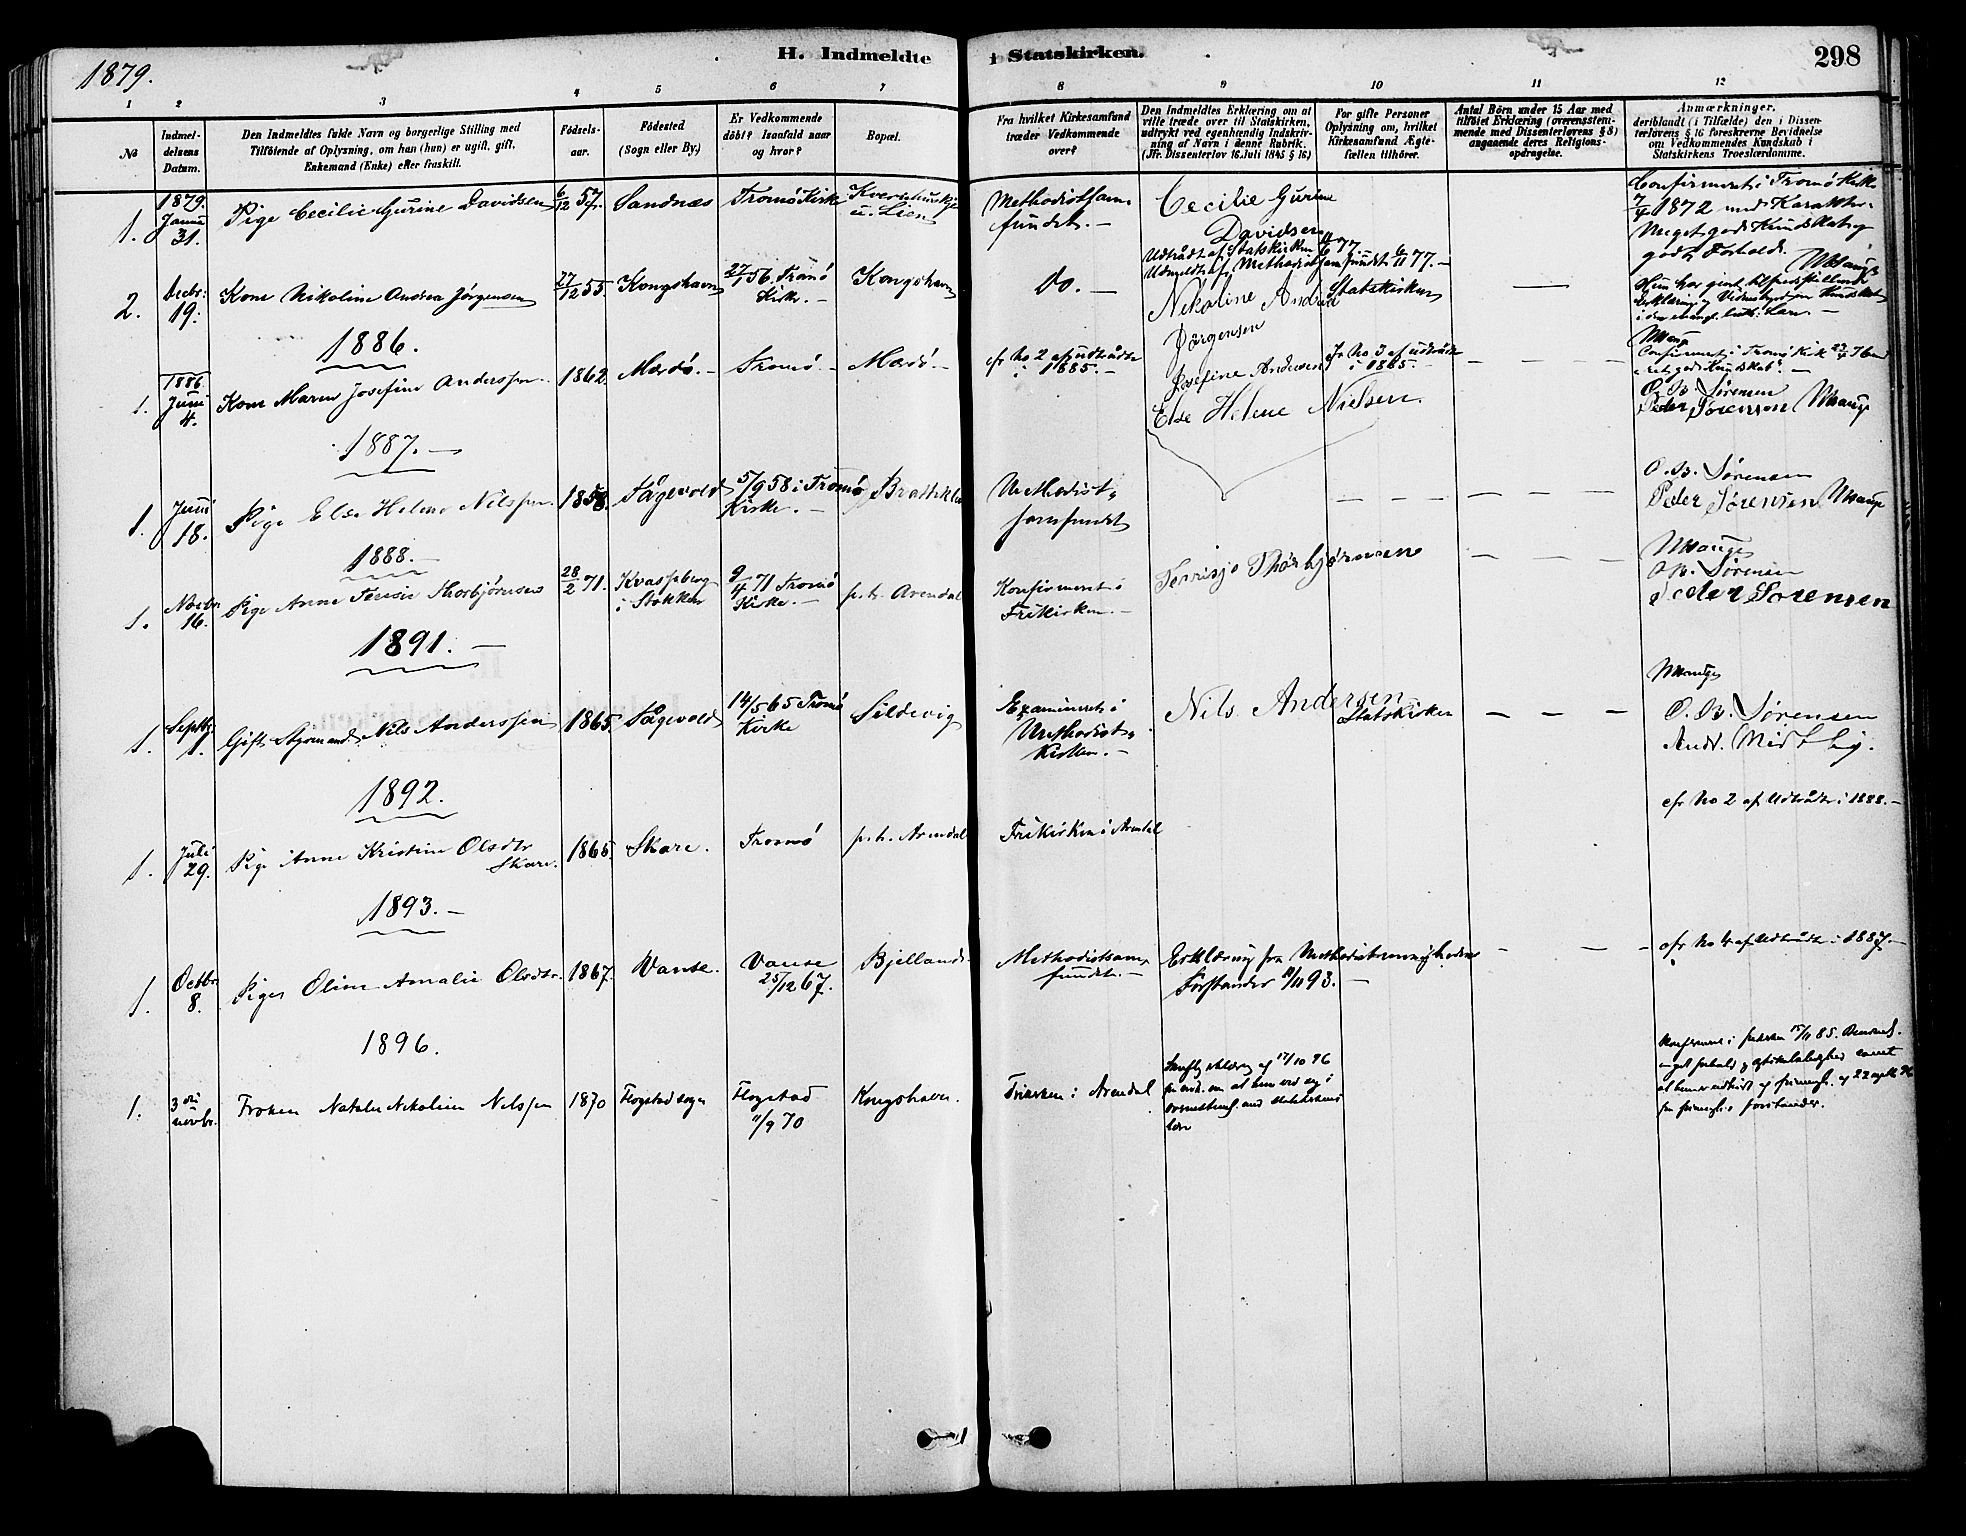 1879.
H. Indmeldte i Statskirken.
298
1 2 3 4 5 6 7 8 9 10 11 12
No
Indmel-
delsens
Datum.
Den Indmeldtes fulde Navn og borgerlige Stilling med
Tilföiende af Oplysning, om han (hun) er ugift, gift,
Enkemand (Enke) eller fraskilt.
Födsels-
aar.
Födested
(Sogn eller By.)
Er Vedkommende
döbt? Isaafald naar
og hvor?
Bopæl.
Fra hvilket Kirkesamfund
træder Vedkommende
over?
Den Indmeldtes Erklæring om at
ville træde over til Statskirken,
udtrykt ved egenhændig Indskriv-
ning af Navn i denne Rubrik.
(Jfr. Dissenterlov 16 Juli 1845 § 16)
For gifte Personer
Oplysning om, hvilket
Kirkesamfund Ægte-
fællen tilhörer.
Antal Börn under 15 Aar med
tilföiet Erklæring (overensstem-
mende med Dissenterlovens § 8)
angaaende deres Religions-
opdragelse.
Anmærkninger,
deriblandt (i Tilfælde) den i Dissen-
terlovens § 16 foreskrevne Bevidnelse
om Vedkommendes Kundskab i
Statskirkens Troeslærdomme.
1.
1879.
Janu
31.
Pige Cecilie Gurine Davidsen
6/12 57.
Sandnæs
Tromö Kirke
u. Lien
Methodistsam-
fundet. -
Cecilie Gurine
Davidsen
Confirmeret i Tromö Kirke
7/4 1872 med Karakter
Meget god Kundskab og
godt Forhold.
2.
Decbr:
19.
Kone Nikoline Andrea Jörgensen
27/12 55.
Kongshavn
27/1 56. Tromö
Kirke. -
Kongshavn
Do. -
Udtraadt af Statskirken 77. -
Udmeldt af Methodistsamfundet 6/11 77. -
Nikoline Andrea
Jörgensen
Statskirken
Hun har givet tilfredsstillende
Erklæring
1886.
1.
1886.
Juni
4.
Kone Maren Josefine Anderssen.
1862
Mærdö. -
Tromö. -
Mærdö. -
cfr No 2 af udtraadte
i 1885. -
Josefine Andersen
cfr No 3 af udtraadte
i 1885. -
Confirmeret i Tromö Kirke
O. B. Sörensen
Peder Sörensen
Else Helene Nielsen.
1887. -
1.
Juni
18.
Pige Else Helene Nilssen
1858.
Sagevold
5/9 58 i Tromö
Kirke. -
Methodist-
samfundet
O. B. Sörensen
Peder Sørensen
1888. -
1.
Novbr
16.
Pige Anne Terisie Thorbjörnsens
28/2 71.
Kvasseberg
i Stokken
9/4 71 Tromö
Kirke. -
p. t. Arendal
Konfirmeret i
Frikirken. -
Terrisje Thorbjørnsen
O. B. Sörensen
Peder Sørensen
1891. -
1.
Septbr
1.
Gift Styrmand Nils Anderssen
1865.
Sagevold
14/5 65 Tromö
Kirke
Sildevig
Examineret i
Methodist-
Kirken. -
Nils Andersen
Statskirken
O. B. Sørensen
Andr.
1892.
1.
Juli
29.
Pige Anne Kristine Olsdtr
Skare.
1865.
Skare.
Tromö
p. t. Arendal
Frikirken i Arendal
cfr No 2 af Udtraadte i 1888. -
1893. -
1.
Octbr
8.
Pige Oline Amalie Olsdtr.
1867
Vanse.
Vanse
25/12 67.
Bjelland
Methodistsam-
fundet. -
Erklæring fra Methodistmenighedens
Forstander 93. -
cfr No 4 af Udtraadte i 1887. -
1896.
1.
3 die
novbr.
Fröken Natalie Nikoline Nilssen
1870
Flogstad sogn
Flogstad
11/9 70
Kongshavn.
Frikirken i Arendal
17/10 96
Konfirmeret i frikirken 15/11 85.
forstander.